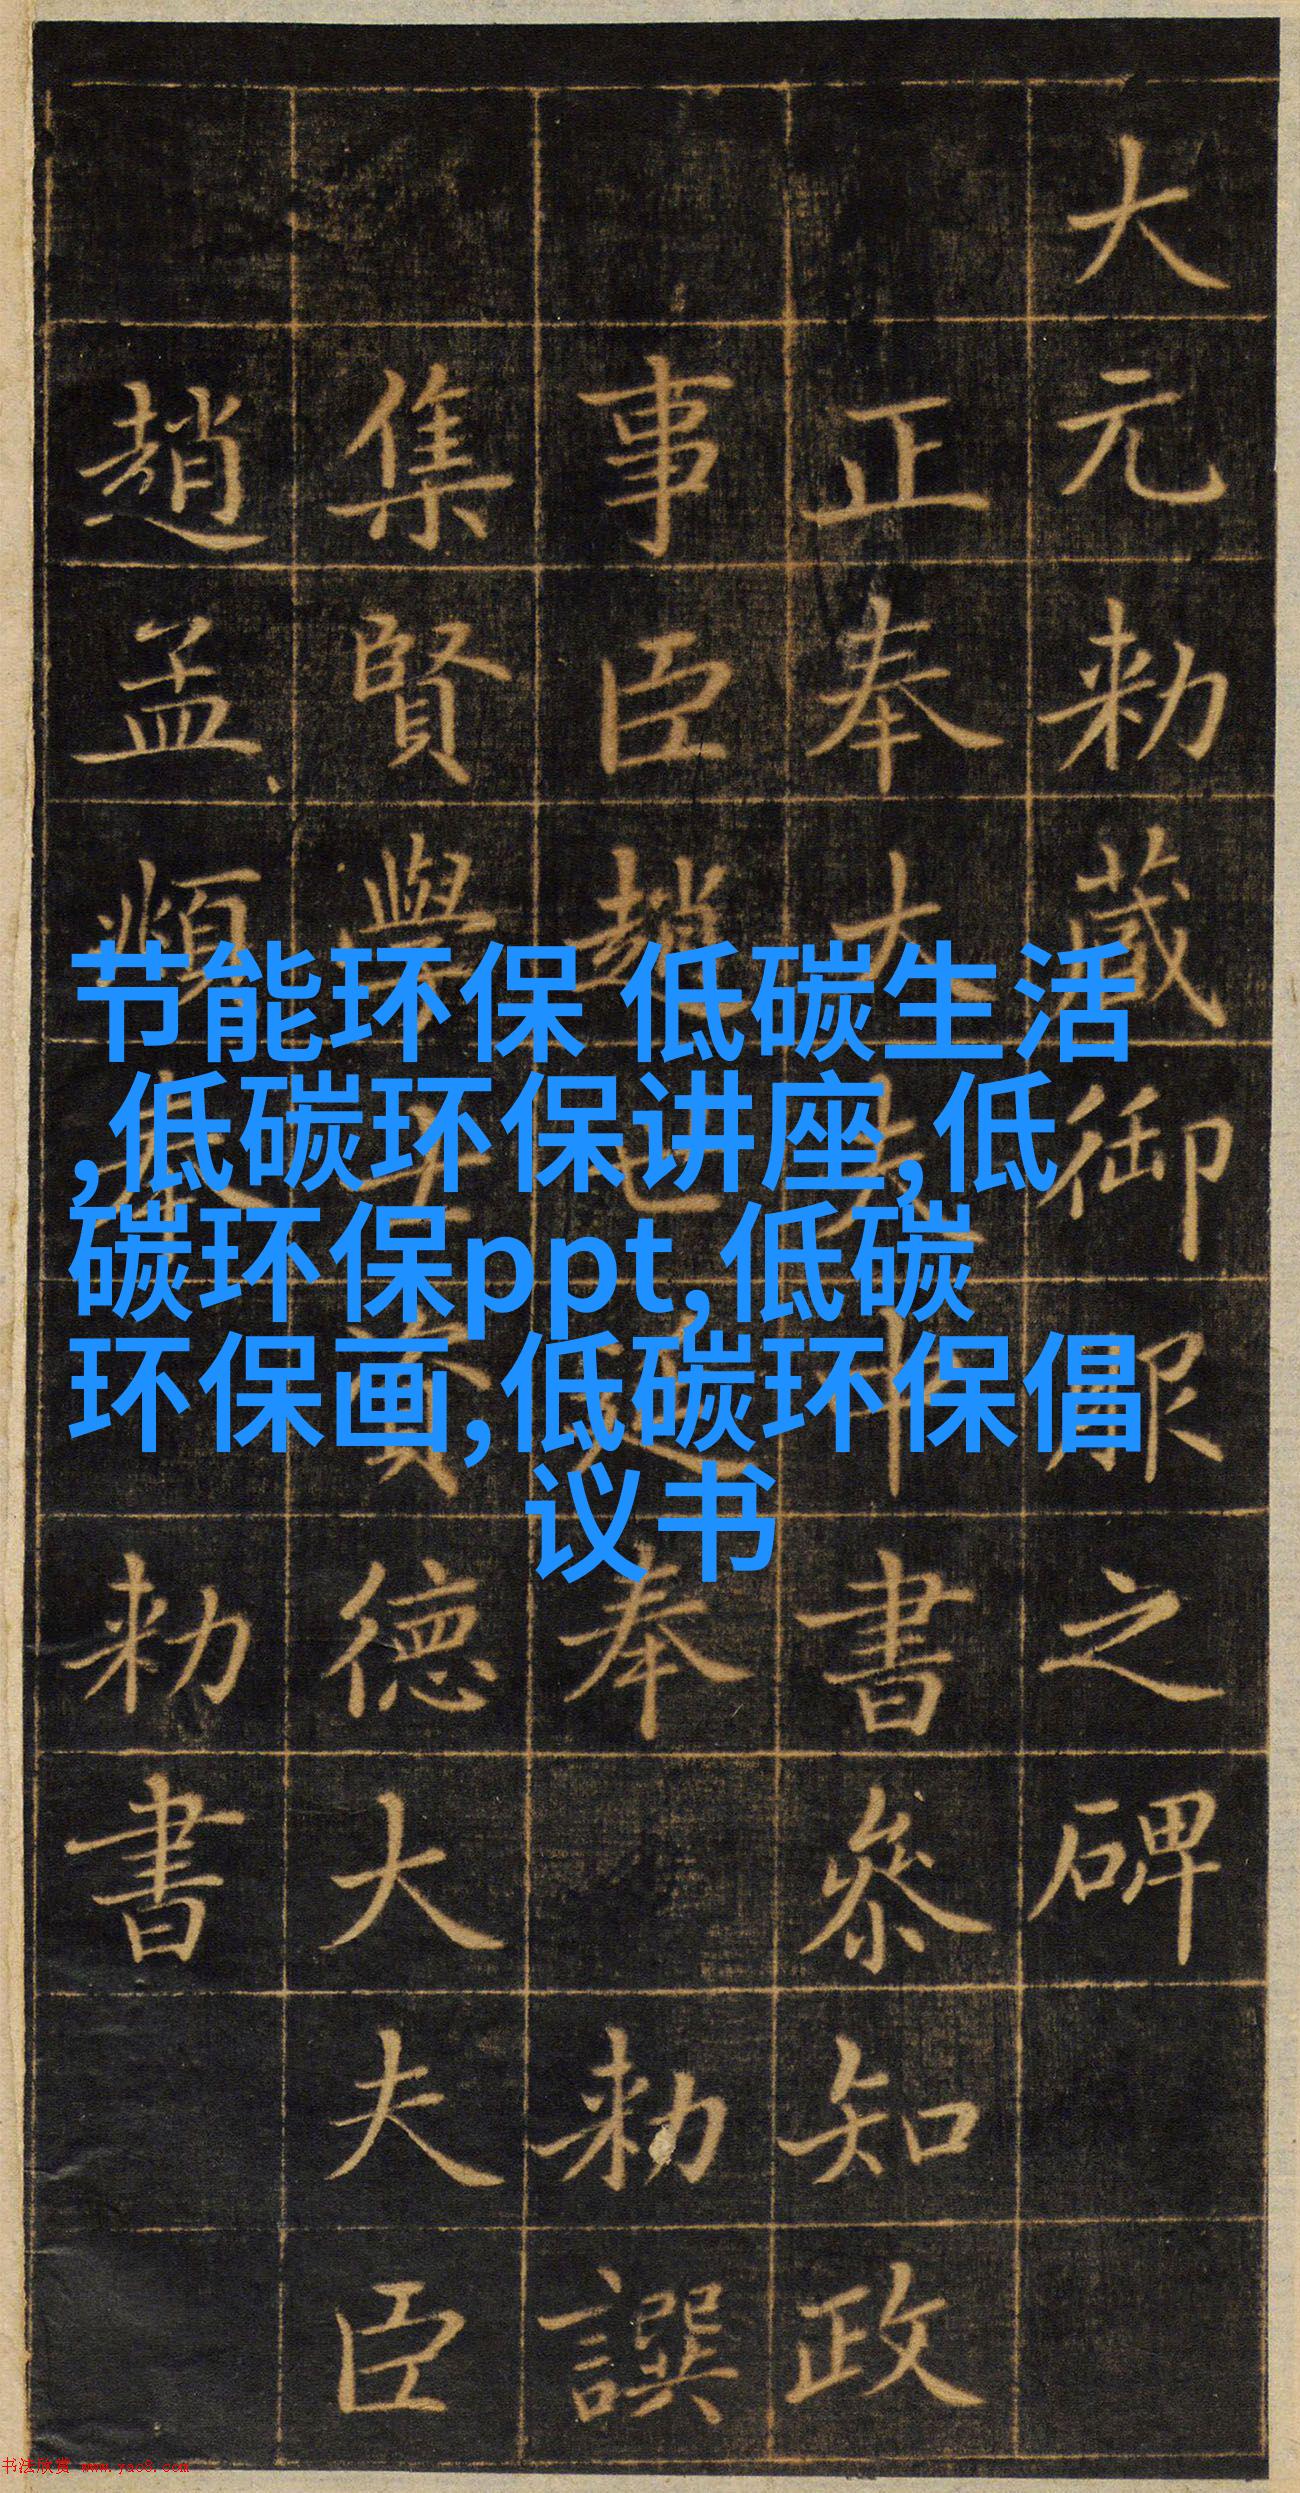 大元勅蔵御服之碑
正奉大夫中書叅知政
事臣趙世延奉 勅譔
集賢學士資德大夫臣
趙孟頫奉 勅書
节能环保 低碳生活
,低碳环保讲座,低
碳环保ppt,低碳
环保画,低碳环保倡
议书
书法欣赏 www.yac8.com